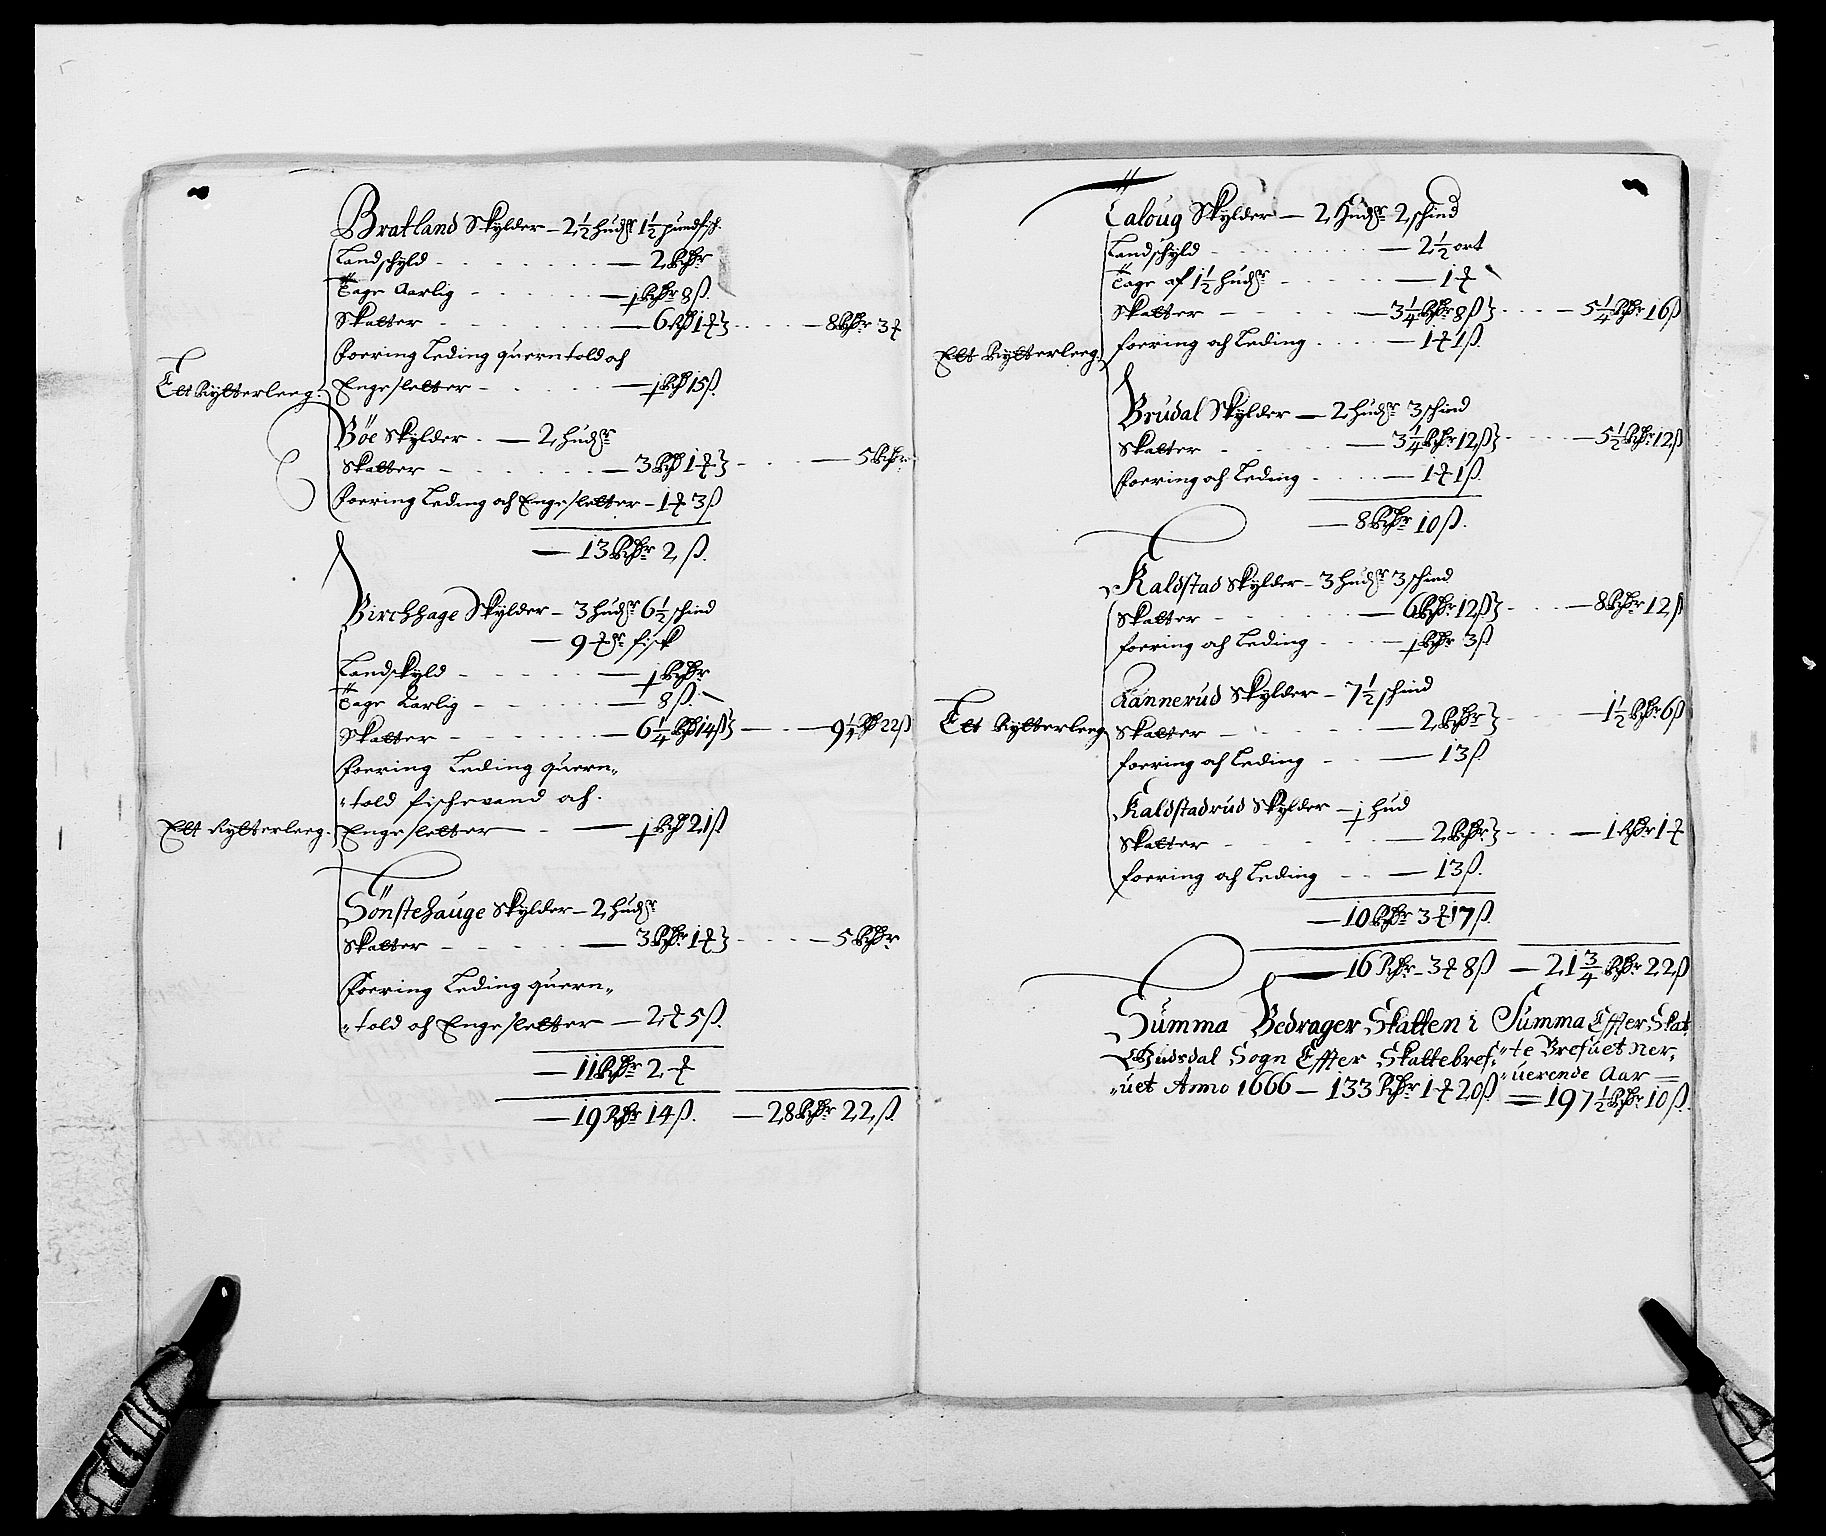 Bratland Skylder – 2 1/2 hudr 1 1/2 pund fisk
Landschyld – 2 Rdr
Tage Aarlig – 1 Rdr 8 ß
Skatter – 6 Rd 1 ₰ } – 8 Rdr 3 ₰
Foering Leding querntold och
Ett Rytterleeg. Engesletter – 1 Rd 15 ß
Böe Skylder – 2 hudr
Skatter – 3 Rd 1 ₰ } – 5 Rdr
Foering Leding och Engesletter – 1 ₰ 3 ß
– 13 Rdr 2 ß.
Birchhage Skylder – 3 hudr 6 1/2 schind
– 9 ₰r fisk
Landskyld – 1 Rdr
Tage Aarlig – 8 ß.
Skatter – 6 1/4 Rd 14 ß } – 9 1/4 Rd 22 ß
Foering Leding quern„
„told fischevand och.
Ett Rytterleeg. Engesletter – 1 Rd 21 ß
Sönstehauge Skylder – 2 hudr
Skatter – 3 Rdr 1 ₰ } – 5 Rdr
Foering Leding quern„
„told och Engesletter – 2 ₰ 5 ß.
– 11 Rdr 2 ₰
– 19 Rdr 14 ß. – 28 Rdr 22 ß.
Taloug Skylder – 2 Hudr 2 schind
Landschyld – 2 1/2 ort
Tage af 1 1/2 hudr – 1 ₰
Skatter – 3 1/4 Rdr 8 ß } – 5 1/4 Rdr 16 ß
Ett Rytterleeg. foering och Leding – 1 ₰ 1 ß.
Brudal Skylder – 2 hudr 3 schind
Skatter – 3 1/4 Rdr 12 ß } – 5 1/2 Rdr 12 ß
foering och Leding – 1 ₰ 1 ß.
– 8 Rdr 10 ß.
Kaldstad Skylder – 3 hudr 3 schind
Skatter – 6 Rdr 12 ß } – 8 Rdr 12 ß
foering och Leding – 1 Rdr 3 ß
Rannerud Skylder – 7 1/2 schind
Ett Rytterleeg Skatter – 2 Rdr } – 1 1/2 Rdr 6 ß
foering och Leding – 13 ß
Kaldstadrud Skylder – 1 hud
Skatter – 2 Rdr } – 1 Rdr 1 ₰
foering och Leding – 13 ß.
– 10 Rdr 3 ₰ 17 ß.
– 16 Rdr – 3 ₰ 8 ß – 21 3/4 Rdr 22 ß
Summa Bedrager Skatten i
Gudsdal Sogn Effter Skattebref„
„uet Anno 1666 – 133 Rdr 1 ₰ 20 ß
Summa Effter Skat
„te Brefuet Ner„
„uerende Aar
= 197 1/2 Rdr 10 ß.